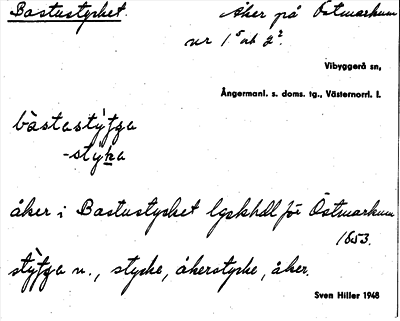 Bastustycket. Åker på Östmarkum
nr 1⁵ och 2².
Vibyggerå sn,
Ångermanl. s. doms. tg., Västernorrl. l.
bàstastỳʃʒa
-stỳka
åker i Bastustycket lgskhdl för Östmarkum
1853.
stỳʃʒa n., stycke, åkerstycke, åker.
Sven Hiller 1948